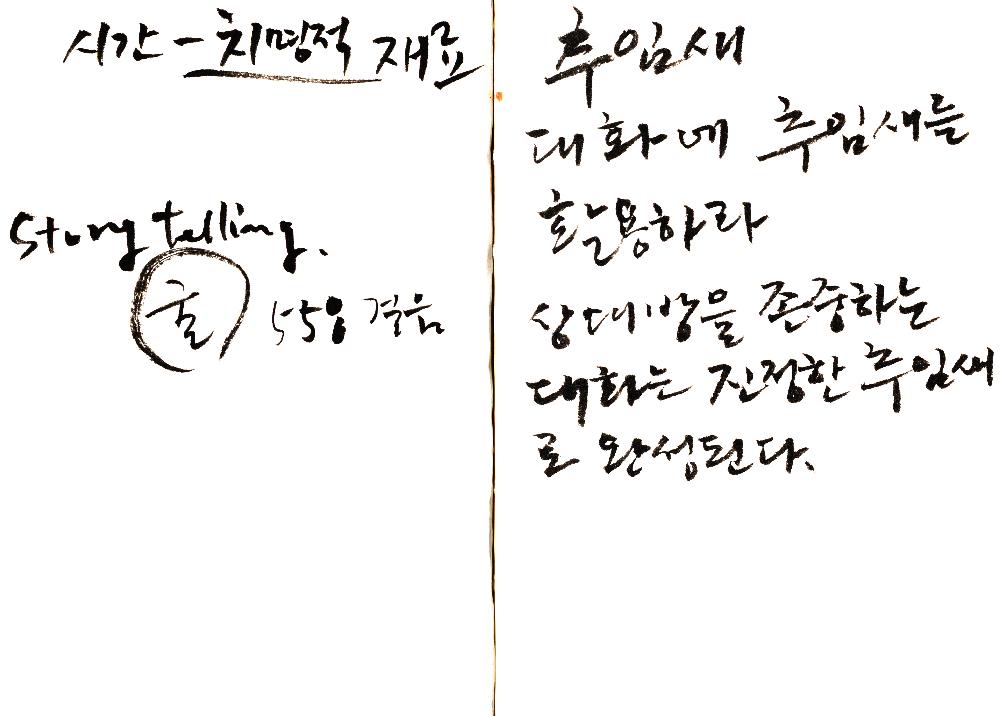 시간 - 치명적 재료
Story telling.
굴 558 겪음
추임새
대화에 추임새를
활용하라
상대방을 존중하는
대화는 진정한 추임새
로 완성된다.